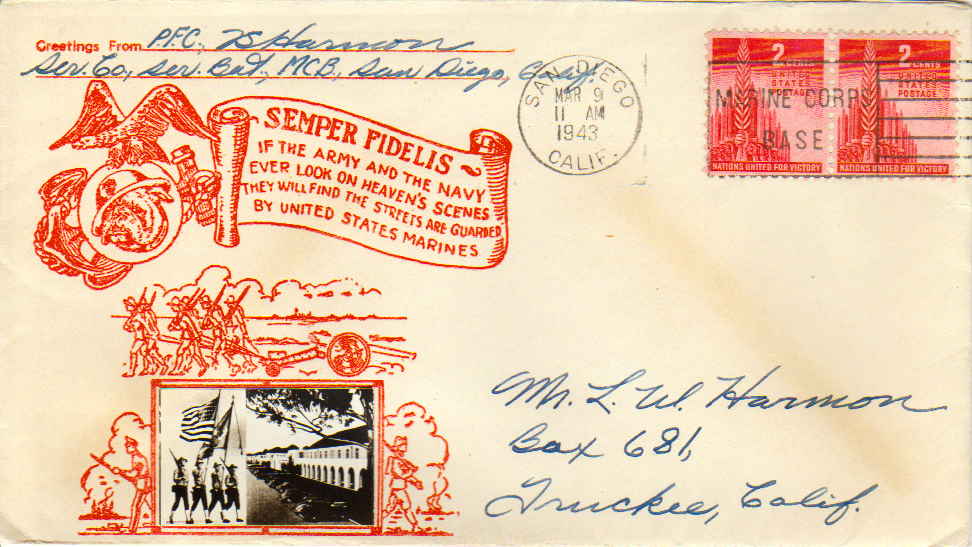 Greetings From P.F.C. W Harmon
Ser. Co., Ser. Bat., MCB, San Diego, Calif.
SEMPER FIDELIS
IF THE ARMY AND THE NAVY
EVER LOOK ON HEAVEN'S SCENES
THEY WILL FIND THE STREETS ARE GUARDED
BY UNITED STATES MARINES
SAN DIEGO
MAR 9
11 AM
1943
CALIF.
MARINE CORP
BASE
2 CENTS
UNITED
STATES
POSTAGE
NATIONS UNITED FOR VICTORY
2 CENTS
UNITED
STATES
POSTAGE
NATIONS UNITED FOR VICTORY
Mr. L. W. Harmon
Box 681,
Truckee, Calif.